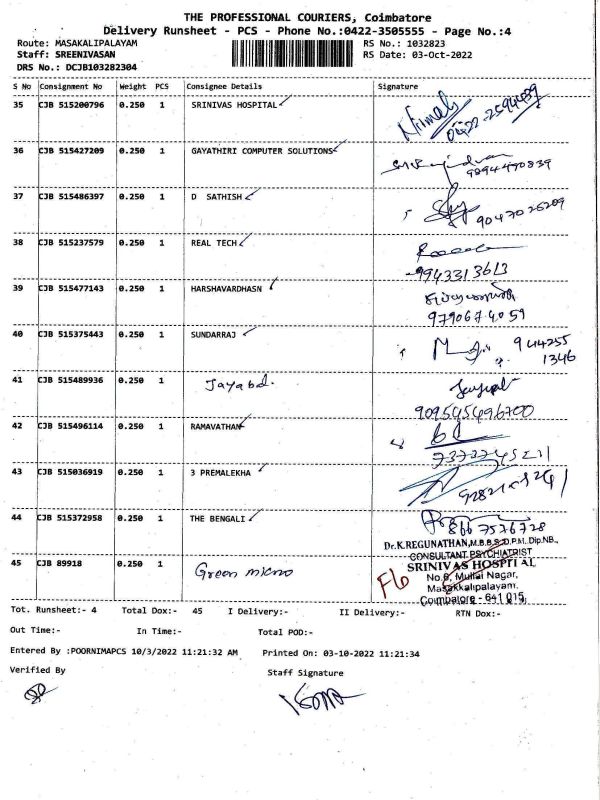 THE PROFESSIONAL COURIERS, Coimbatore
Delivery Runsheet - PCS - Phone No.:0422-3505555 - Page No.:4
Route: MASAKALIPALAYAM RS No.: 1032823
Staff: SREENIVASAN RS Date: 03-Oct-2022
DRS No.: DCJB103282304
S No Consignment No Weight PCS Consignee Details Signature
35 CJB 515200796 0.250 1 SRINIVAS HOSPITAL
36 CJB 515427209 0.250 1 GAYATHIRI COMPUTER SOLUTIONS
9894490839
37 CJB 515486397 0.250 1 D SATHISH
38 CJB 515237579 0.250 1 REAL TECH
9943313613
39 CJB 515477143 0.250 1 HARSHAVARDHASN
9790674059
40 CJB 515375443 0.250 1 SUNDARRAJ
944255
1346
41 CJB 515489936 0.250 1
42 CJB 515496114 0.250 1 RAMAVATHAN
43 CJB 515036919 0.250 1 3 PREMALEKHA
44 CJB 515372958 0.250 1 THE BENGALI
Dr.K.REGUNATHAN,M.B.B.S.D.P.M.,Dip.NB.,
CONSULTANT PSYCHIATRIST
SRINIVAS HOSPITAL
45 CJB 89918 0.250 1 Green micro
No.6, Mullai Nagar,
Masakkalipalayam,
Coimbatore - 641 015.
Tot. Runsheet:- 4 Total Dox:- 45 I Delivery:- II Delivery:- RTN Dox:-
Out Time:- In Time:- Total POD:-
Entered By :POORNIMAPCS 10/3/2022 11:21:32 AM Printed On: 03-10-2022 11:21:34
Verified By Staff Signature